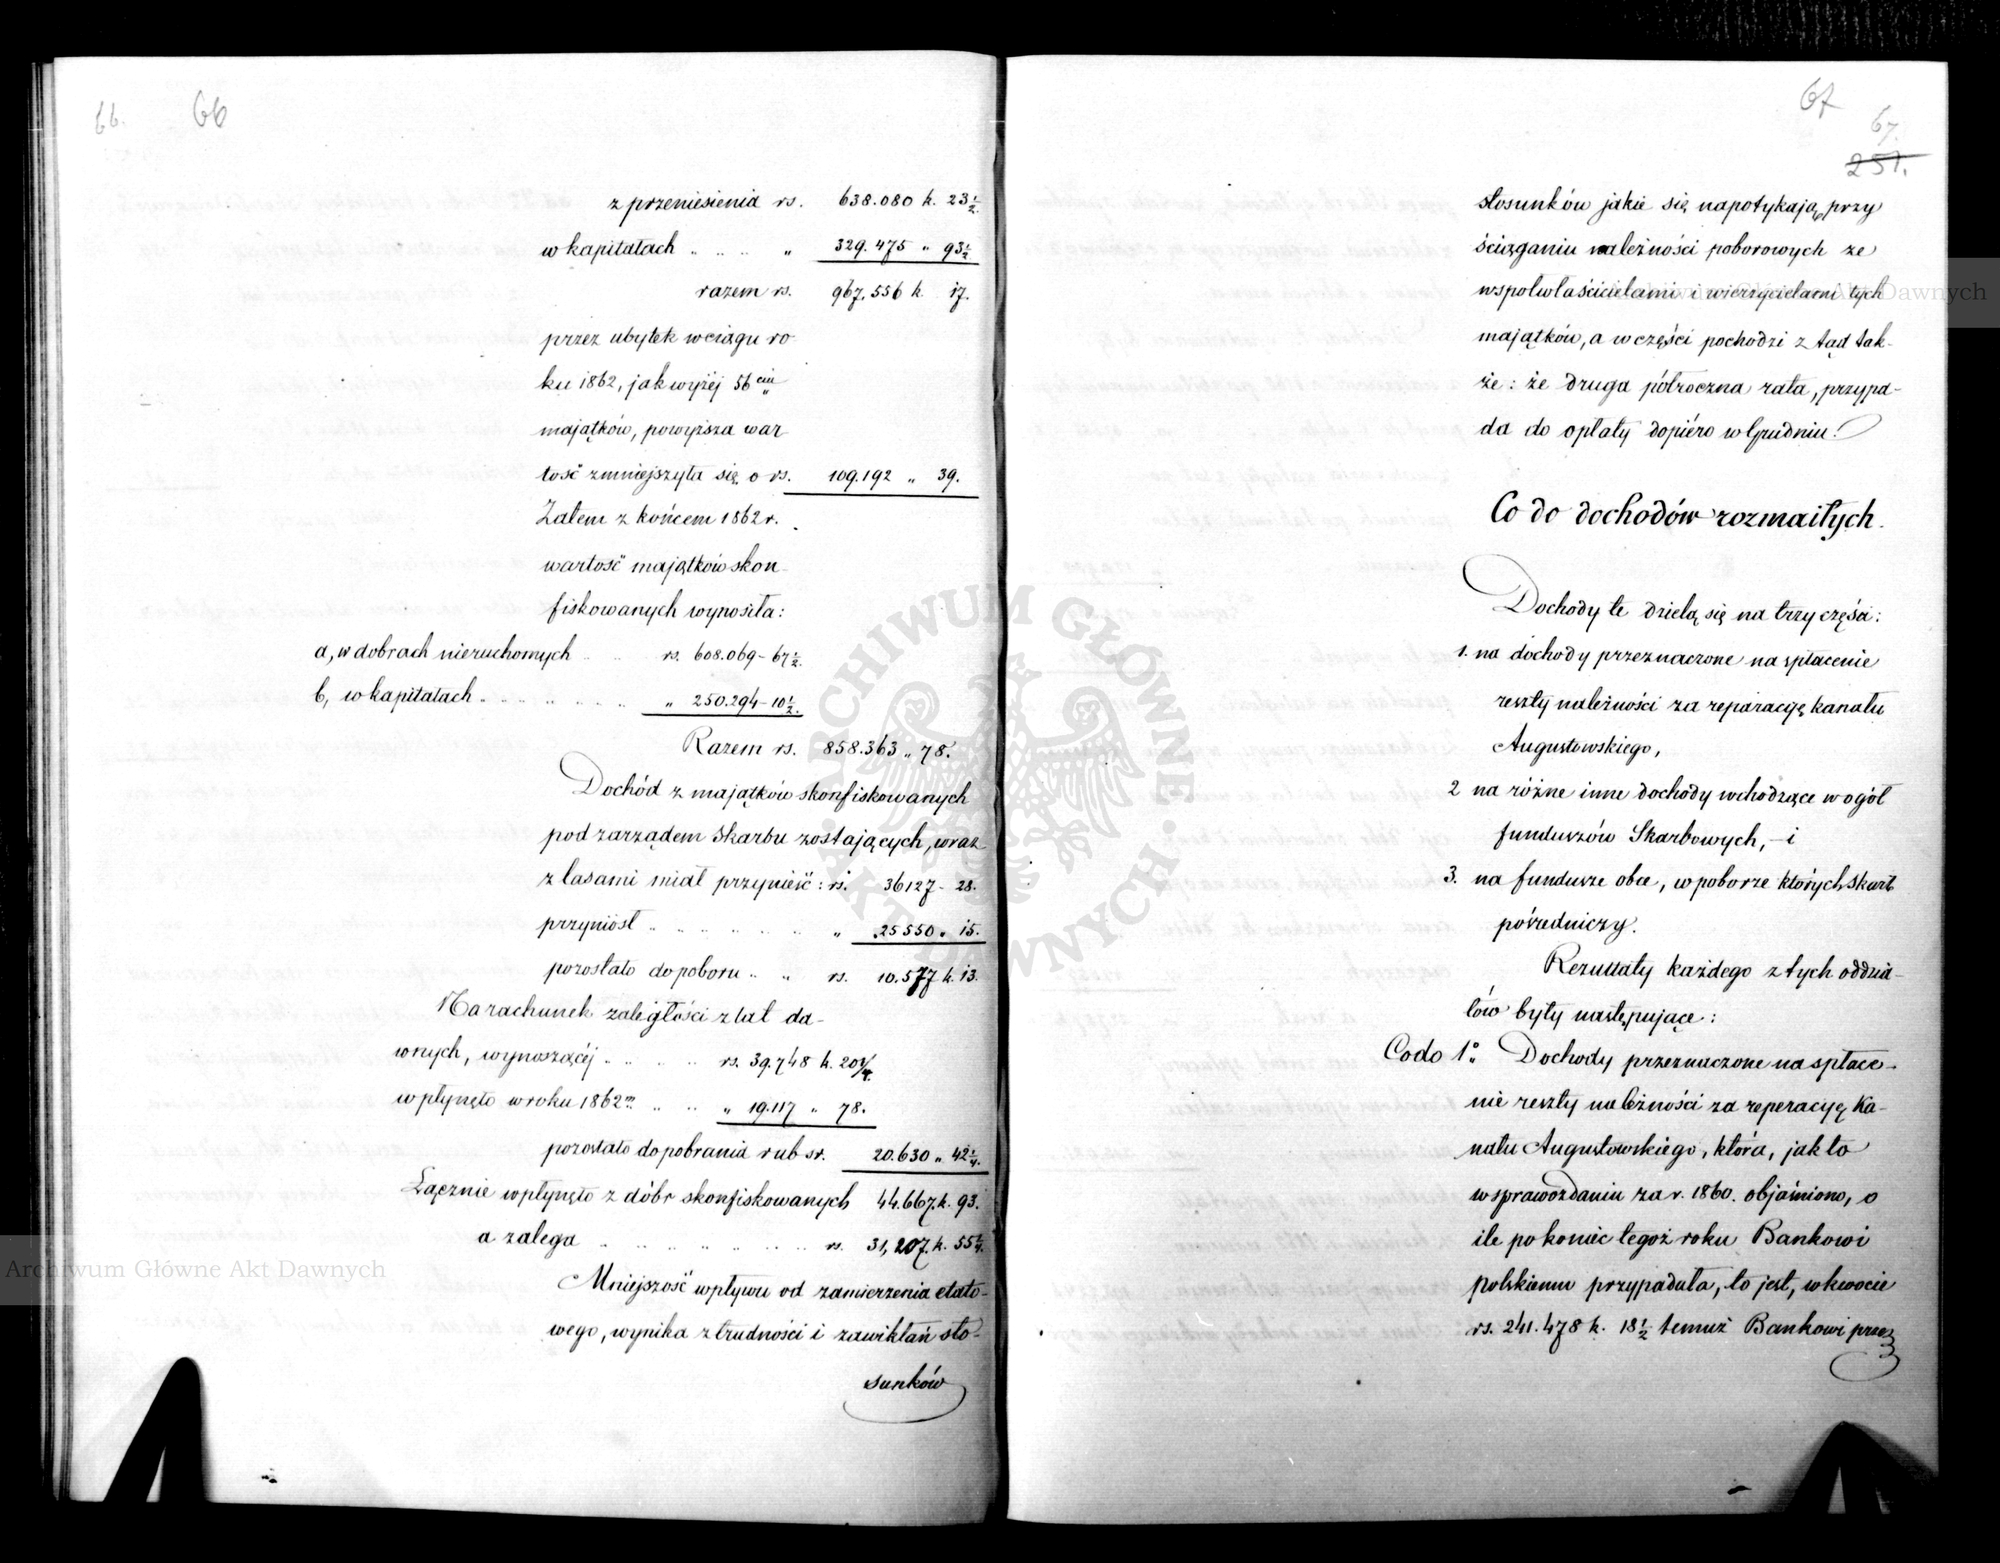 66.
66
z przeniesienia rs. 638.080 k. 23½.
w kapitałach „ .. .. „ 329.475 „ 93½
razem rs. 967.556 k. 17.
przez ubytek w ciągu ro-
ku 1862, jak wyżej 56ciu
majątków, powyższa war
tość zmniejszyła się o rs. 109.192 „ 39.
Zatem z końcem 1862 r.
wartość majątków skon-
fiskowanych wynosiła:
a, w dobrach nieruchomych .. .. rs. 608.069 – 67½.
b, w kapitałach .. .. .. .. .. „ 250.294 – 10½.
Razem rs. 858.363 „ 78.
Dochód z majątków skonfiskowanych
pod zarządem Skarbu zostających, wraz
z lasami miał przynieść: rs. 36127 – 28.
przyniósł .. .. .. .. .. „ 25550 „ 15.
pozostało do poboru .. „ rs. 10.577 k. 13.
Na rachunek zaległości z lat da-
wnych, wynoszącéj .. .. .. rs. 39.748 k. 20¼.
wpłynęło w roku 1862m .. .. „ 19.117 „ 78.
pozostało do pobrania rub sr. 20.630 „ 42¼.
Łącznie wpłynęło z dóbr skonfiskowanych 44.667. k. 93.
a zalega .. .. .. .. .. rs. 31,207. k. 55¼.
Mniejszość wpływu od zamierzenia etato-
wego, wynika z trudności i zawikłań sto-
sunków
67
67.
251.
stosunków jakie się napotykają, przy
ściąganiu należności poborowych ze
współwłaścicielami i wierzycielami tych
majątków, a w części pochodzi z tąd tak-
że: że druga półroczna rata, przypa-
da do opłaty dopiéro w Grudniu.
Co do dochodów rozmaitych.
Dochody te dzielą się na trzy części:
1. na dochody przeznaczone na spłacenie
reszty należności za reparacyę kanału
Augustowskiego,
2 na różne inne dochody wchodzące w ogół
funduszów Skarbowych, – i
3. na fundusze obce, w poborze których Skarb
pośredniczy.
Rezultaty każdego z tych oddzia-
łów były następujące:
Co do 1o. Dochody przeznaczone na spłace-
nie reszty należności za reperacyę Ka-
nału Augustowskiego, która, jak to
w sprawozdaniu za r. 1860. objaśniono, o
ile po koniec tegoż roku Bankowi
polskiemu przypadała, to jest, w kwocie
rs. 241.478 k. 18½ temuż Bankowi przez
Archiwum Główne Akt Dawnych
Archiwum Główne Akt Dawnych
ARCHIWUM GŁÓWNE AKT DAWNYCH